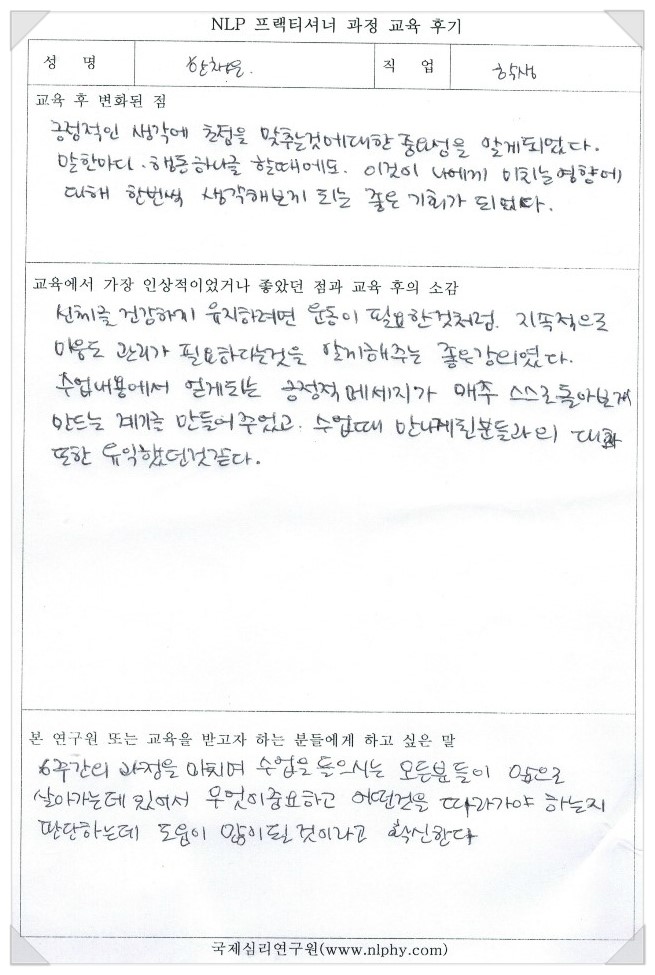 NLP 프랙티셔너 과정 교육 후기
성 명 한채은 직 업 학생
교육 후 변화된 점
긍정적인 생각에 초점을 맞추는것에대한 중요성을 알게되었다.
말한마디. 행동하나를 할때에도. 이것이 나에게 미치는영향에
대해 한번씩 생각해보게 되는 좋은 기회가 되었다.
교육에서 가장 인상적이었거나 좋았던 점과 교육 후의 소감
신체를 건강하게 유지하려면 운동이 필요한것처럼. 지속적으로
마음도 관리가 필요하다는것을 알게해주는 좋은강의였다.
수업내용에서 얻게되는 긍정적메세지가 매주 스스로돌아보게
만드는 계기를 만들어주었고. 수업때 만나게된분들과의 대화
또한 유익했던것같다.
본 연구원 또는 교육을 받고자 하는 분들에게 하고 싶은 말
6주간의 과정을 마치며 수업을 들으시는 모든분들이 앞으로
살아가는데 있어서 무엇이중요하고 어떤것을 따라가야 하는지
판단하는데 도움이 많이될것이라고 확신한다
국제심리연구원(www.nlphy.com)